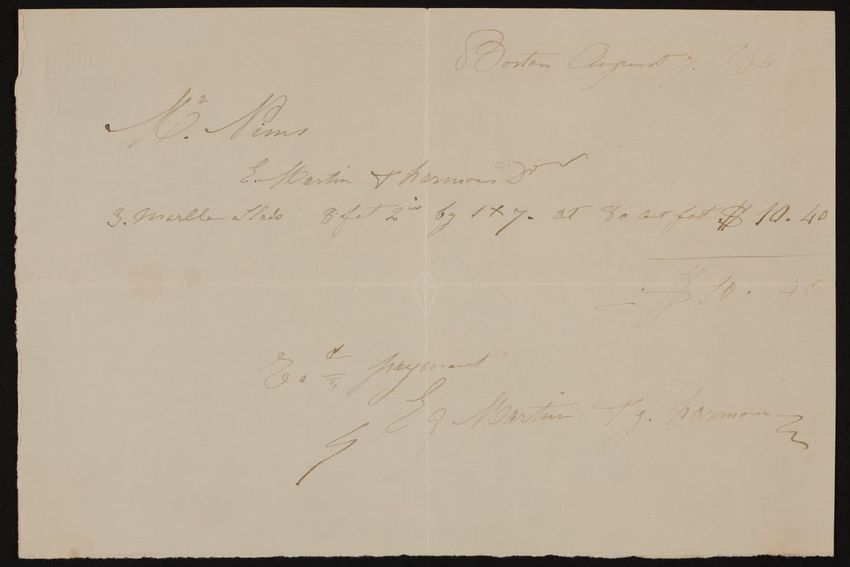 Boston August 7. /66
Mr. Nims
E. Martin & harmons Dr
3. Marble Slabs 8 fet 2in by 1 & 7. at 80 cut fot $ 10. 40
$ 10. 40
Ecd payment
E g Martin & g. harmon